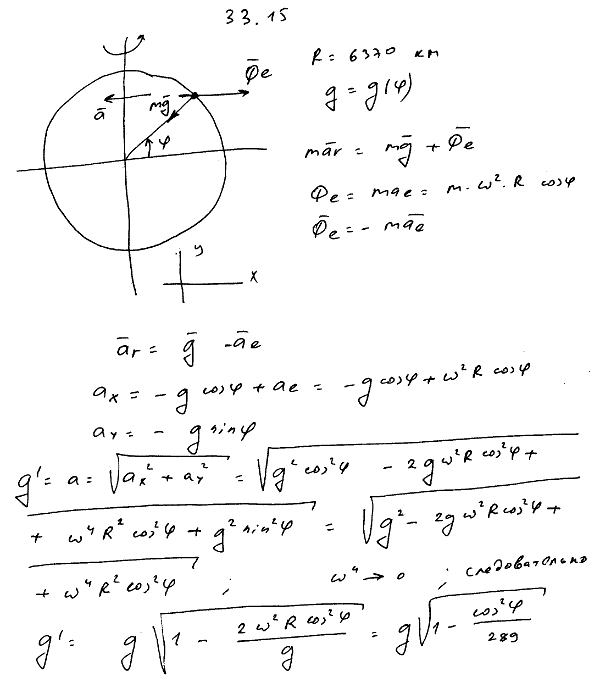 33.15
R = 6370 км
g = g(φ)
Φ̄e
mḡ
ā
φ
mār = mḡ + Φ̄e
Φe = mae = m·ω²·R cosφ
Φ̄e = - māe
y
x
ār = ḡ - āe
ax = - g cosφ + ae = -g cosφ + ω² R cosφ
ay = - g sinφ
g' = a = √(ax² + ay²) = √(g² cos²φ - 2gω² R cos²φ +
+ ω⁴ R² cos²φ + g² sin²φ) = √(g² - 2gω²R cos²φ +
+ ω⁴ R² cos²φ) ; ω⁴ → 0 ; следовательно
g' = g √(1 - 2ω² R cos²φ / g) = g √(1 - cos²φ / 289)